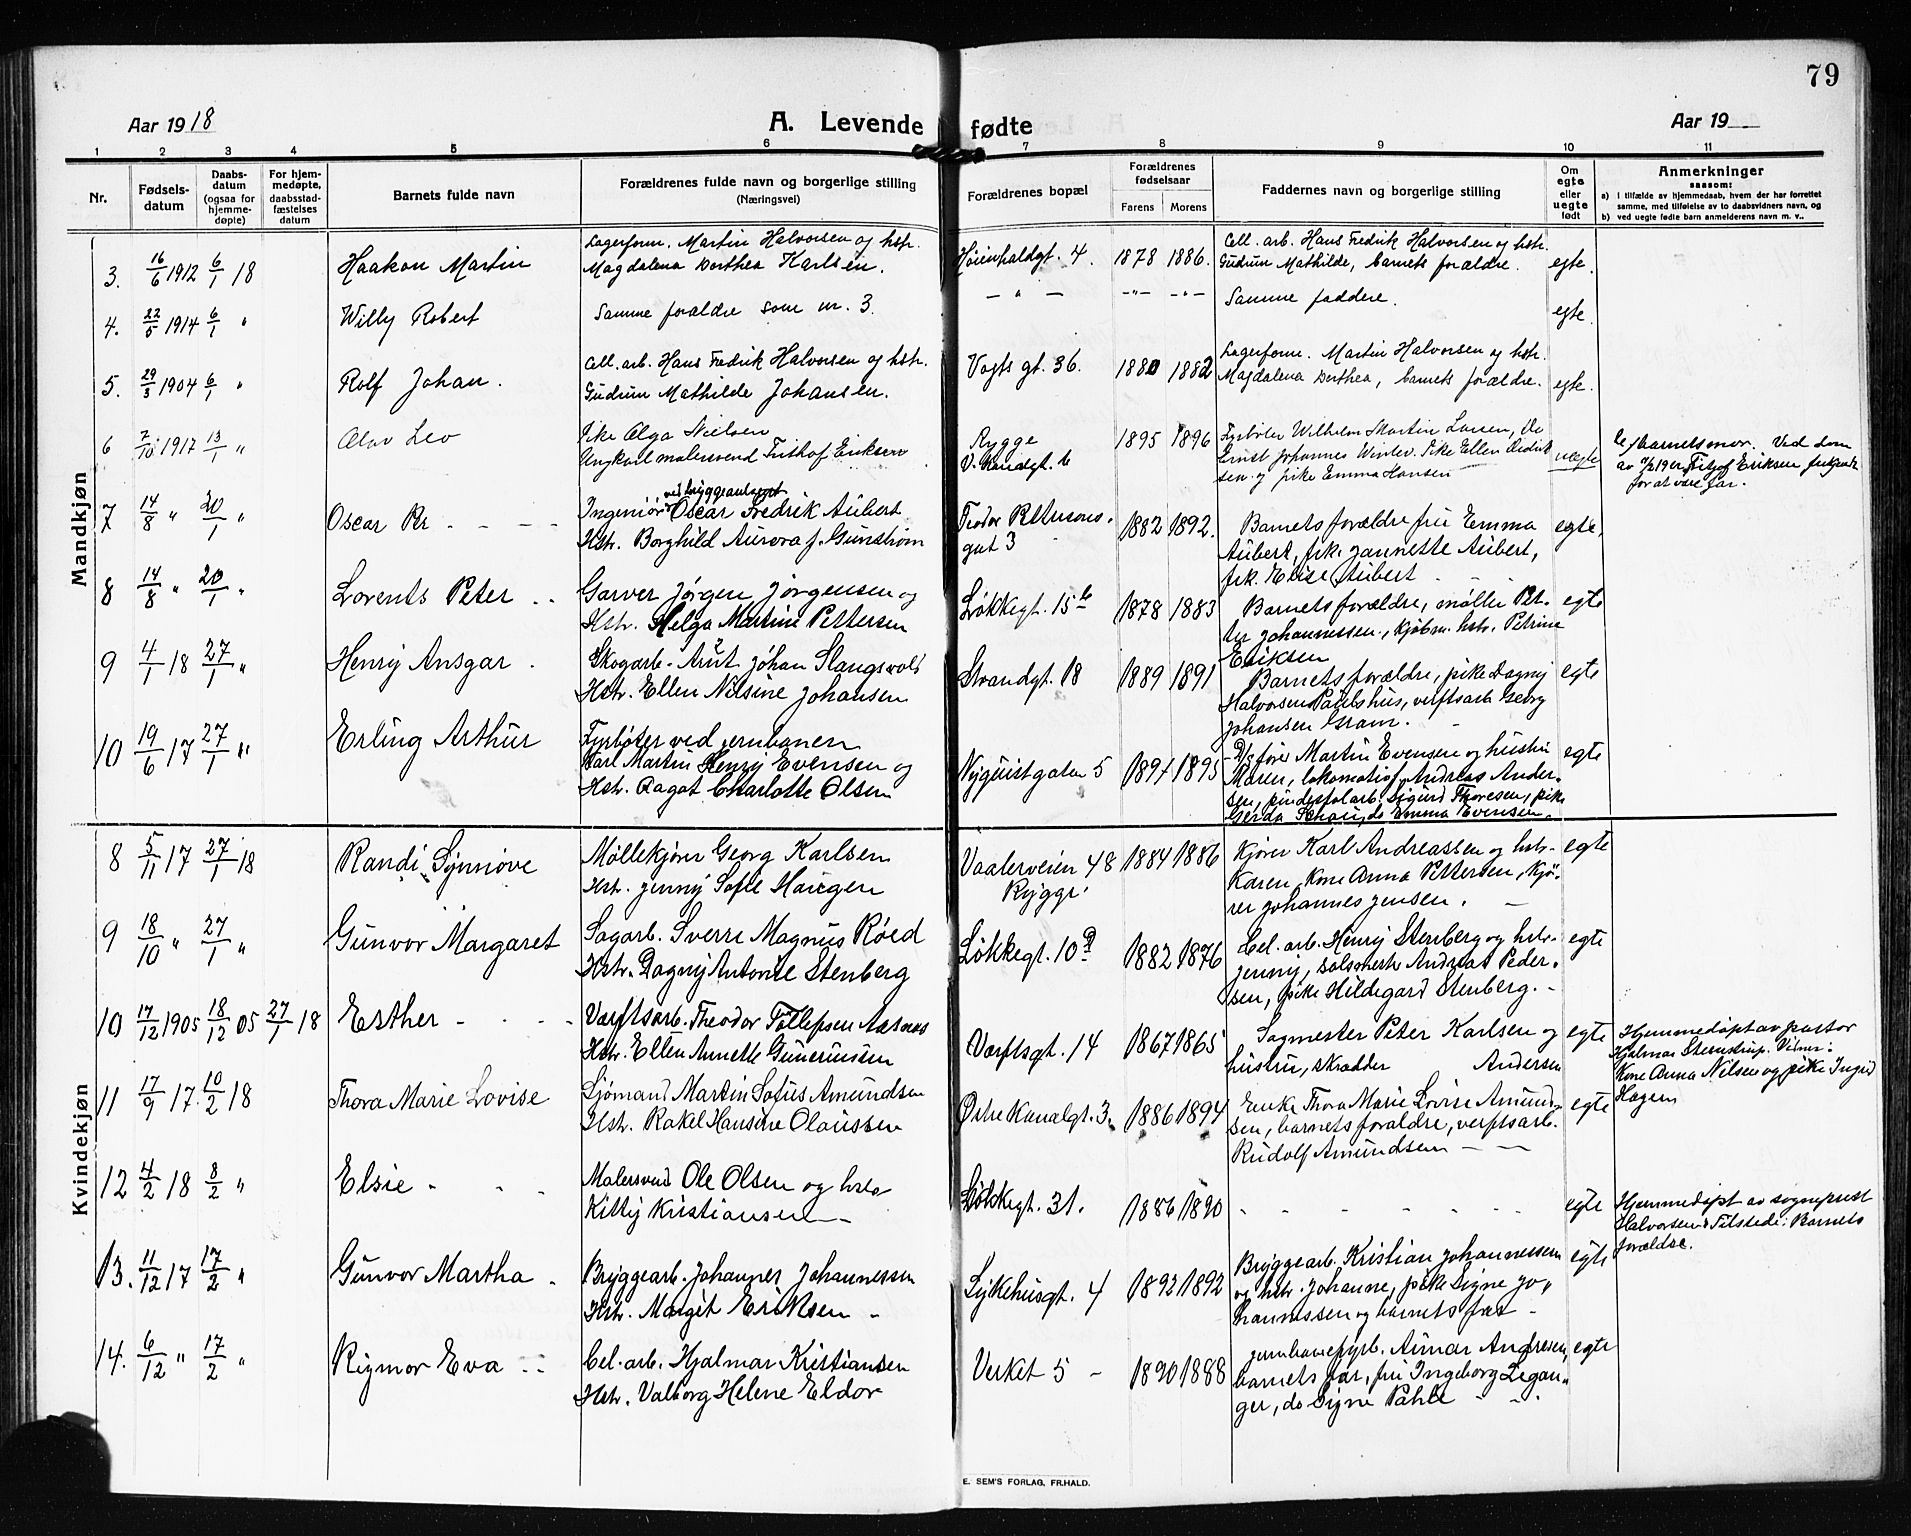 79
Aar 1918
A. Levende fødte
Aar 19
1 2 3 4 5 6 7 8 9 10 11
Nr.
Fødsels-
datum
Daabs-
datum
(ogsaa for
hjemme-
døpte)
For hjem-
medøpte,
daabsstad-
fæstelses
datum
Barnets fulde navn
Forældrenes fulde navn og borgerlige stilling
(Næringsvei)
Forældrenes bopæl
Forældrenes
fødselsaar
Farens Morens
Faddernes navn og borgerlige stilling
Om
egte
eller
uegte
født
Anmerkninger
saasom:
a) i tilfælde av hjemmedaab, hvem der har forrettet
samme, med tilføielse av to daabsvidners navn, og
b) ved uegte fødte barn anmelderens navn m. v..
Mandkjøn
3. 16/6 1912 6/1 18 Haakon Martin
Lagerform. Martin Halvorsen og hstr.
Magdalena Dorthea Karlsen.
Høienhaldgt. 4. 1878 1886.
Cell. arb. Hans Fredrik Halvorsen og hstr.
Gudrun Mathilde, barnets forældre.
egte.
4. 22/5 1914 6/1 " Willy Robert
Samme forældre som nr. 3.
— " — —"— —"—
Samme faddere.
egte.
5. 29/3 1904 6/1 " Rolf Johan.
Cell. arb. Hans Fredrik Halvorsen og hstr.
Gudrun Mathilde Johansen.
Vogts gt. 36. 1880 1882
Lagerform. Martin Halvorsen og hstr.
Magdalena Dorthea, barnets forældre.
egte.
6 7/10 1917 13/1 " Olav Leo
Pike Olga Nielsen
Ungkarl malersvend Frithof Eriksen
Rygge
V. Kanalgt. 6
1895 1896
Fyrbøter Wilhelm Martin Larsen, do
Ernst Johannes Winter. Pike Ellen Didrik
sen og pike Emma Hansen
uegte
barnets mor. Ved dom
Eriksen
for at være far.
7 14/8 " 20/1 " Oscar Per - - - -
ved bryggeanlægget
Ingeniør Oscar Fredrik Aubert
Hstr. Borghild Aurora f. Gunstrøm
Teodor Petersons.
gat 3
1882 1892.
Barnets forældre fru Emma
Aubert, frk. Jannette Aubert,
frk. Elise Aubert
egte,
8 14/8 " 20/1 " Lorents Peter - -
Garver Jørgen Jørgensen og
Hstr. Helga Martine Pettersen
Løkkegt. 15 b 1878 1883
Barnets forældre, møller Pet-
ter Johannessen, kjøbm. hstr. Petrine
Eriksen
egte
9 4/1 18 27/1 " Henry Ansgar -
Skogarb. Arut Johan Slangsvold
Hstr. Ellen Nilsine Johansen
Strandgt. 18 1889 1891
Barnets forældre, pike Dagny
Halvorsen Paulshus, verftsarb Georg
Johansen Gram.
egte
10 19/6 17 27/1 " Erling Arthur
Fyrbøter ved jernbanen
Karl Martin Henry Evensen og
Hstr. Ragat Charlotte Olsen
Nyquistgaten 5 1894 1895
Martin Evensen og hustru
Maren, lokomotivf. Andreas Ander-
sen, Sigurd Thoresen, pike
Gerda do Emma Evensen.
egte
Kvindekjøn
8 5/11 17 27/1 18 Randi Synnøve
Møllekjører Georg Karlsen
Hst. Jenny Sofie Haugen
Vaalerveien 48
Rygge
1884 1886
Kjører Karl Andreassen og hstr.
Karen, Kone Anna Pettersen, Kjø-
rer Johannes Jensen. —
egte
9 18/10 " 27/1 " Gunvor Margaret
Sagarb. Sverre Magnus Røed
Hstr. Dagny Antonie Stenberg
Løkkegt. 10 1882 1876
Cel. arb. Henry Stenberg og hstr.
Jenny, Andreas Peder-
sen, pike Hildegard Stenberg. -
egte
10 17/12 1905 18/12 05 27/1 18 Esther - - - -
Værftsarb. Theodor Tollefsen Aasnæs
Hstr. Ellen Annette Gunerussen
Værftsgt. 14 1867 1865
Sagmester Peter Karlsen og
hustru, skrædder Andersen
egte
Hjemmedøpt av pastor
Hjalmar Stenstrup. Vidner:
Kone Anna Nilsen og pike Ingrid
Hagen
11 17/9 17. 10/2 18 Thora Marie Lovise
Sjømand Martin Sofus Amundsen
Hstr. Rakel Hansine Olaussen
Østre Kanalgt. 3. 1886 1894
Enke Thora Marie Lovise Amund-
sen, barnets forældre, verftsarb.
Rudolf Amundsen — —
egte
12 4/2 18 8/2 " Elsie - - -
Malersvend Ole Olsen og hstr
Kitty Kristiansen —
Løkkegt. 31. 1886 1890
- - - - - - -
egte
Hjemmedøpt av sogneprest
Halvorsen. Tilstede: Barnets
forældre.
13. 11/12 17 17/2 " Gunvor Martha -
Bryggearb. Johannes Johannessen
Hstr. Margit Eriksen -
Sykehusgt. 4 1892 1892
Bryggearb. Kristian Johannessen
og hstr. Johanne, pike Signe Jo"
hannessen og barnets far -
egte
14. 6/12 " 17/2 " Rigmor Eva - -
Cel. arb. Hjalmar Kristiansen
Hstr. Valborg Helene Eldor
Verket 5 - 1890 1888
Jernbanefyrb. Aimar Andresen,
barnets far, fru Ingeborg Legan"
ger, do Signe Pahle - - -
egte
E. SEM'S FORLAG, FR.HALD.